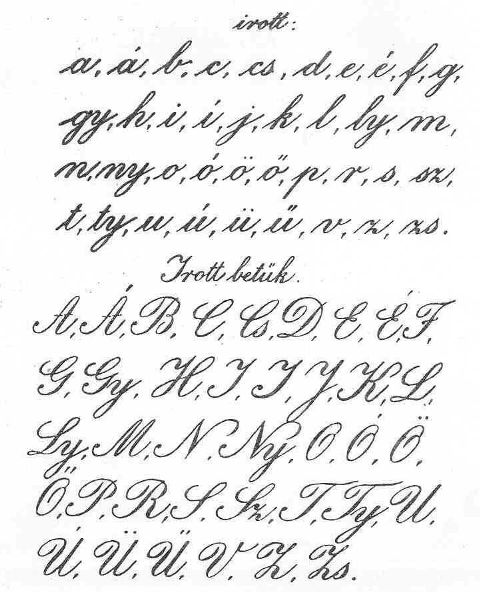 irott:
a, á, b, c, cs, d, e, é, f, g,
gy, h, i, í, j, k, l, ly, m,
n, ny, o, ó, ö, ő, p, r, s, sz,
t, ty, u, ú, ü, ű, v, z, zs.
Irott betük.
A, Á, B, C, Cs, D, E, É, F,
G, Gy, H, I, I, J, K, L,
Ly, M, N, Ny, O, Ó, Ö,
Ő, P, R, S, Sz, T, Ty, U,
Ú, Ü, Ű, V, Z, Zs.